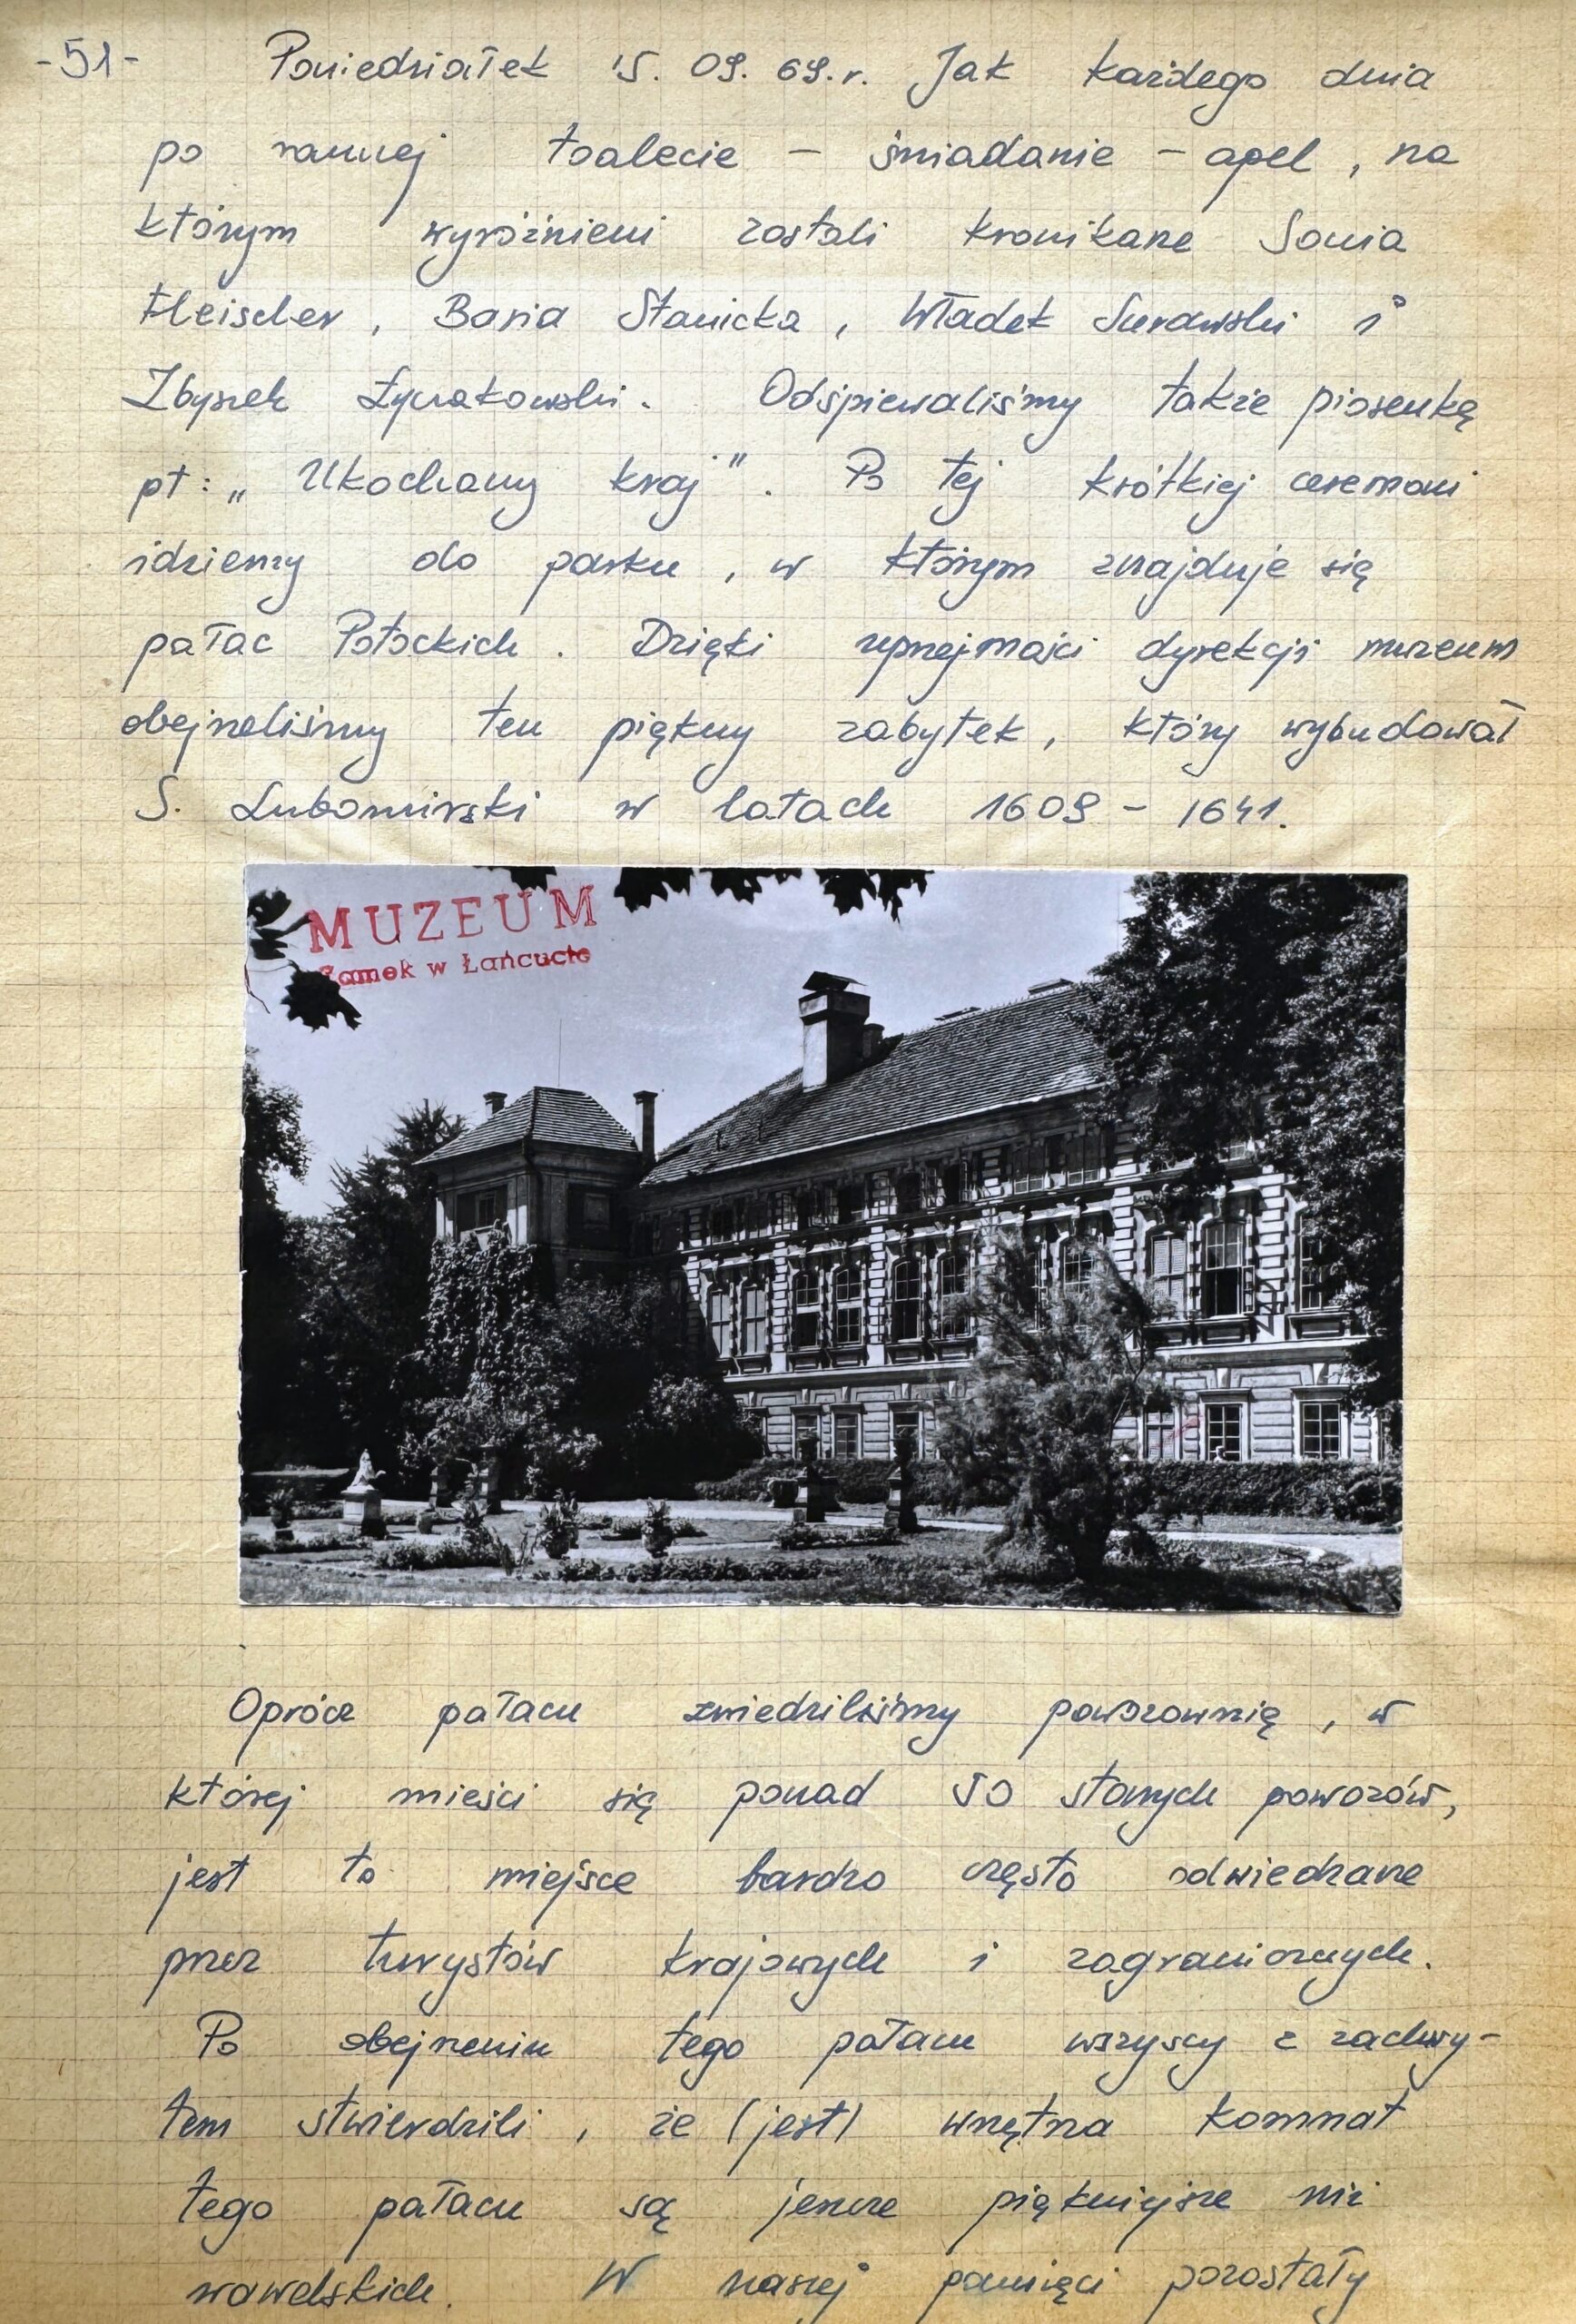 -51- Poniedziałek 15. 09. 69.r. Jak każdego dnia
po rannej toalecie – śniadanie – apel, na
którym wyróżnieni zostali kronikarze Sonia
Fleischer, Basia Stanicka, Władek Surawski i
Zbyszek Łyczakowski. Odśpiewaliśmy także piosenkę
pt: „Ukochany kraj". Po tej krótkiej ceremoni
idziemy do parku, w którym znajduje się
pałac Potockich. Dzięki uprzejmości dyrekcji muzeum
obejrzeliśmy ten piękny zabytek, który wybudował
S. Lubomirski w latach 1609 – 1641.
MUZEUM
Zamek w Łańcucie
Oprócz pałacu zwiedziliśmy powozownię, w
której mieści się ponad 50 starych powozów,
jest to miejsce bardzo często odwiedzane
przez turystów krajowych i zagranicznych.
Po obejrzeniu tego pałacu wszyscy z zachwy-
tem stwierdzili, że (jest) wnętrza komnat
tego pałacu są jeszcze piękniejsze niż
wawelskich. W naszej pamięci pozostały